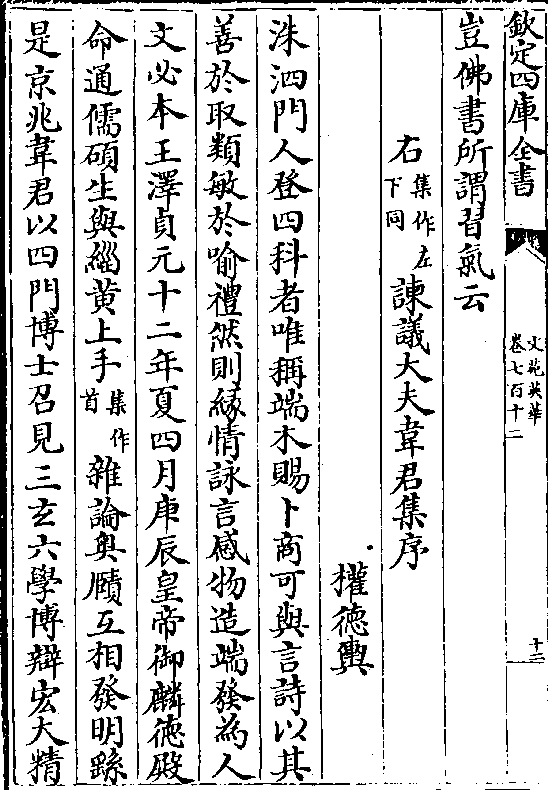 欽定四庫全書
文苑英華
卷七百十二
十二
豈佛書所謂習氣云
右集作左下同諫議大夫韋君集序
權德輿
洙泗門人登四科者唯稱端木賜卜商可與言詩以其
善於取類敏於喻禮然則緣情詠言感物造端發為人
文必本王澤貞元十二年夏四月庚辰皇帝御麟德殿
命通儒碩生與緇黄上手集作首雜論奥賾互相發明繇
是京兆韋君以四門博士召見三玄六學博辯宏大精